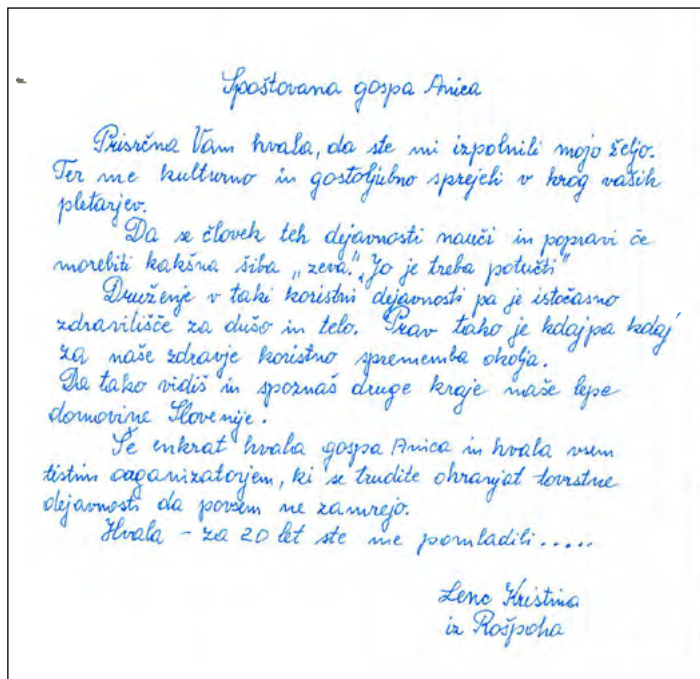 Spoštovana gospa Anica
Prisrčna Vam hvala, da ste mi izpolnili mojo željo.
Ter me kulturno in gostoljubno sprejeli v krog vaših
pletarjev.
Da se človek teh dejavnosti nauči in popravi če
morebiti kakšna šiba „zeva." „Jo je treba potučti"
Druženje v taki koristni dejavnosti pa je istočasno
zdravilišče za dušo in telo. Prav tako je kdajpa kdaj
za naše zdravje koristno sprememba okolja.
Da tako vidiš in spoznaš druge kraje naše lepe
domovine Slovenije.
Še enkrat hvala gospa Anica in hvala vsem
tistim organizatorjem, ki se trudite ohranjat tovrstne
dejavnosti da povsem ne zamrejo.
Hvala - za 20 let ste me pomladili.....
Lenc Kristina
iz Rošpoha